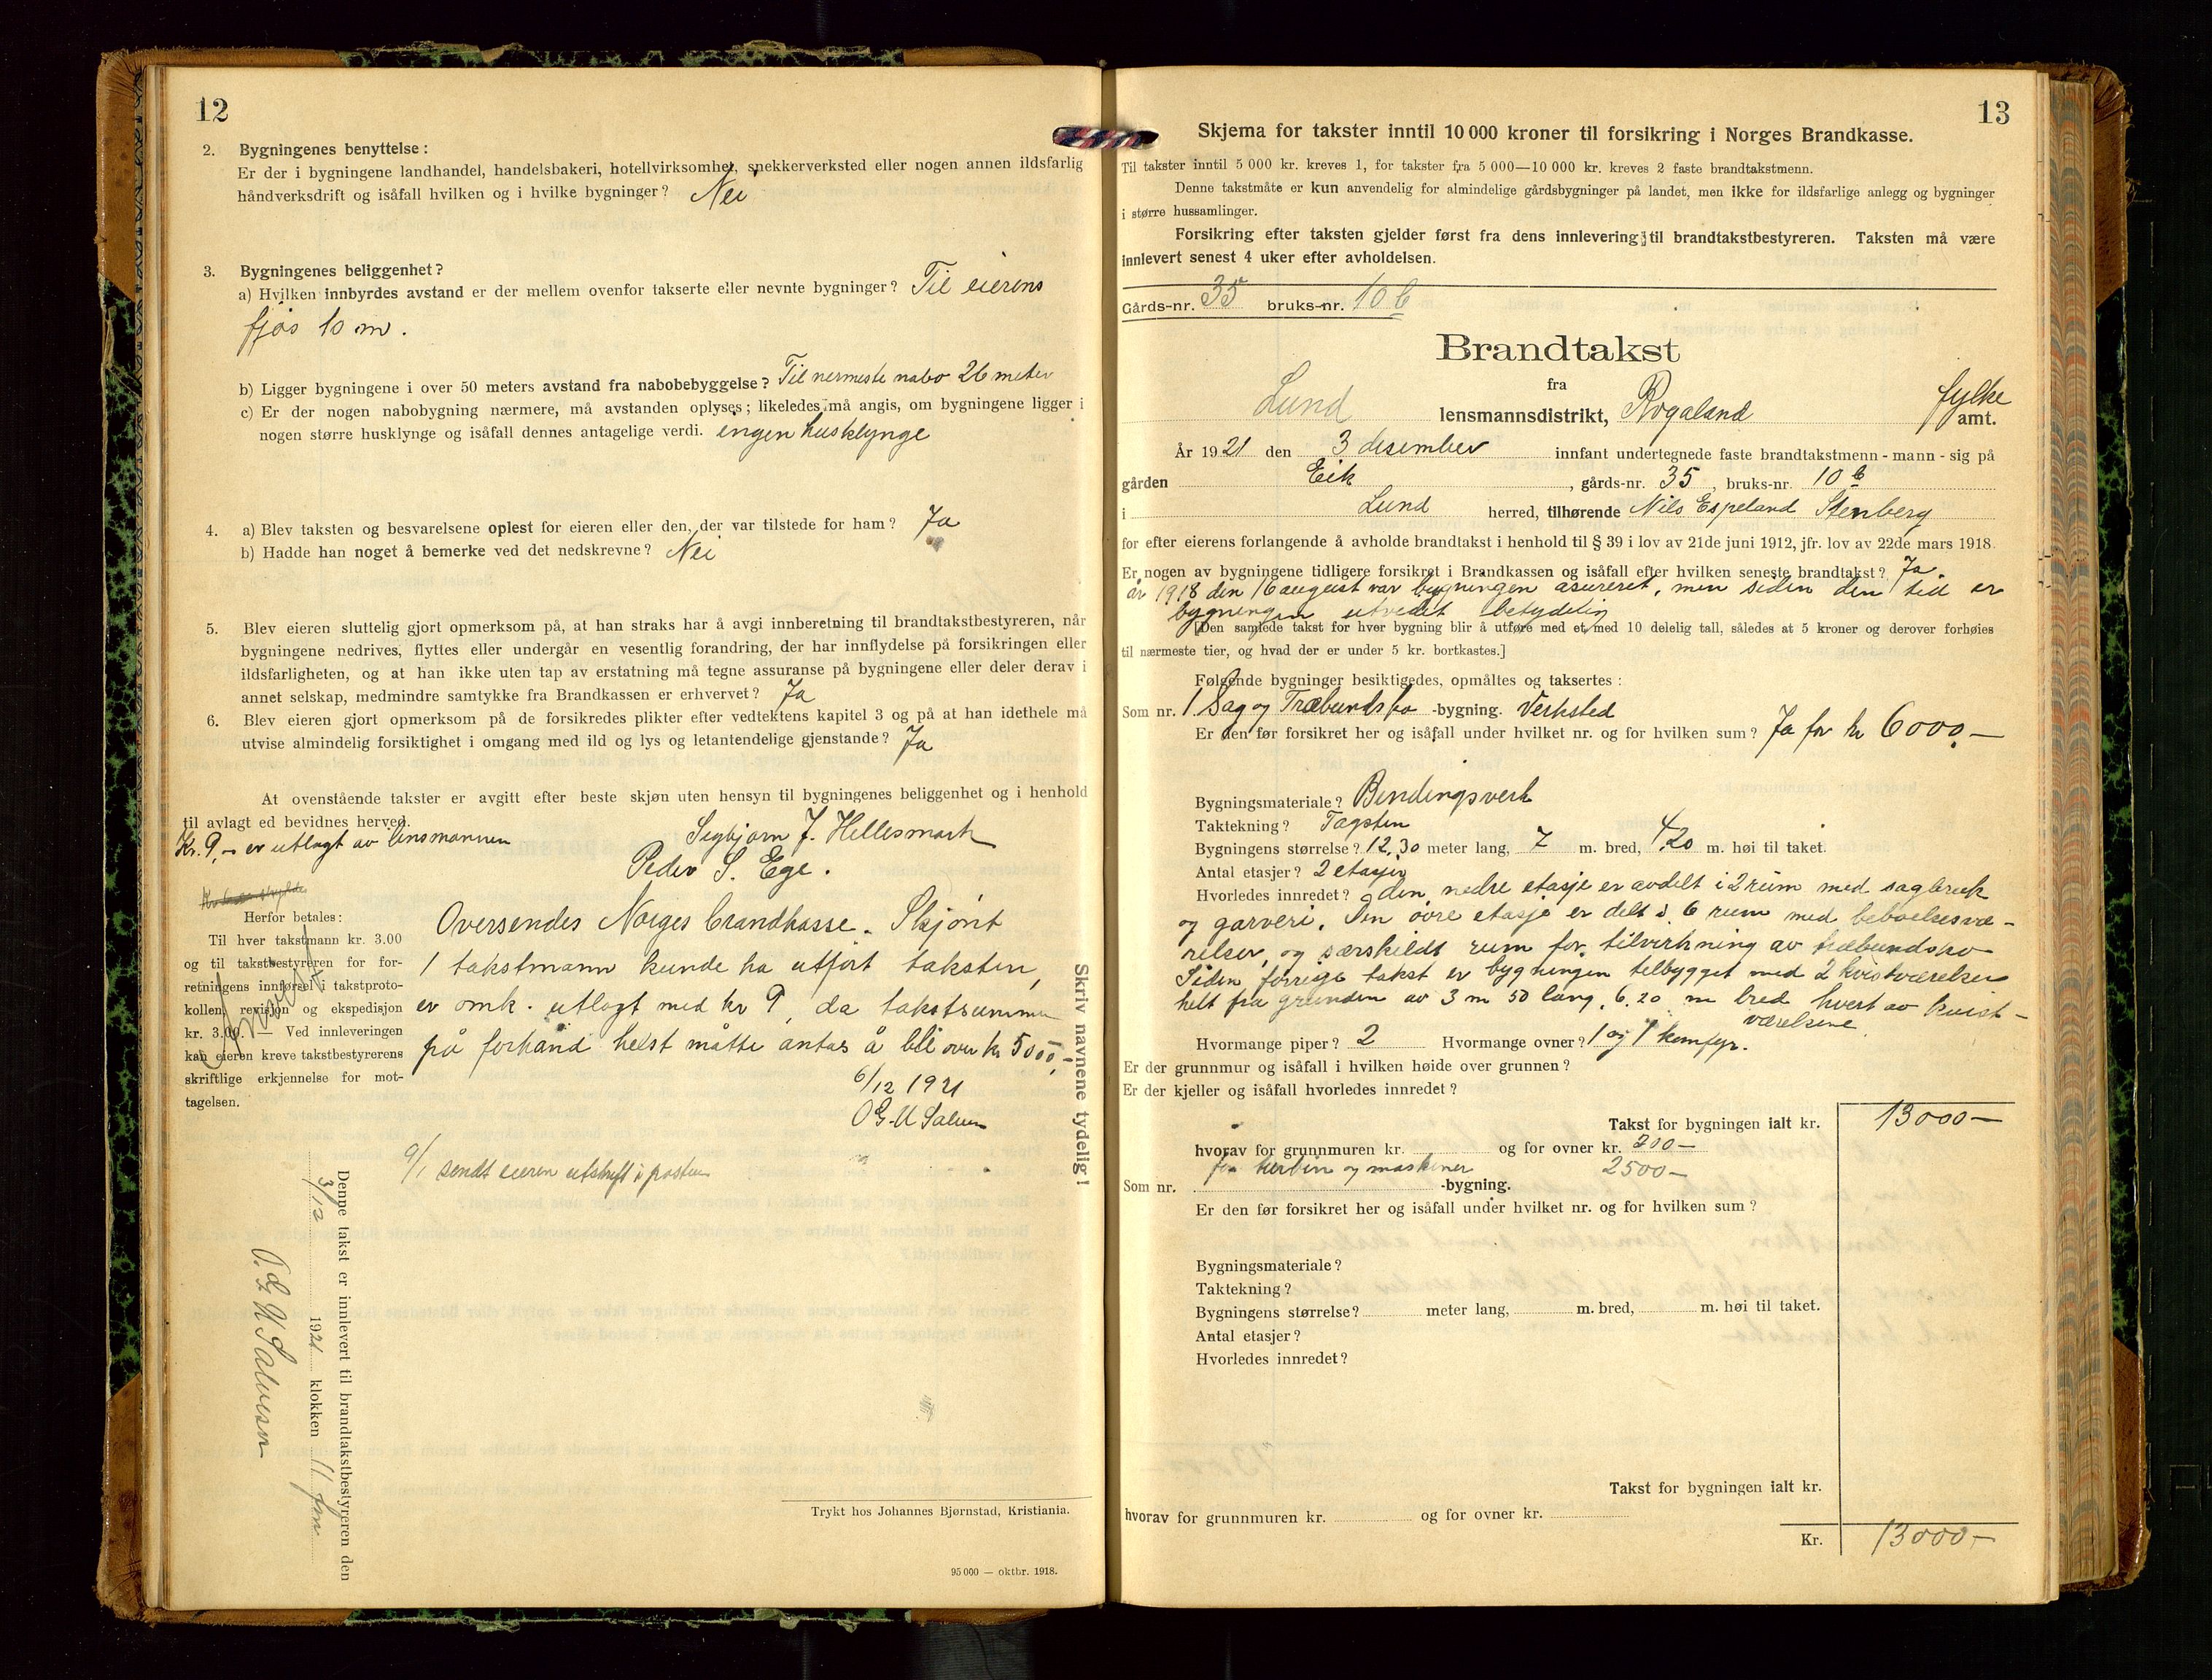 12
2. Bygningenes benyttelse:
Er der i bygningene landhandel, handelsbakeri, hotellvirksomhet, snekkerverksted eller nogen annen ildsfarlig
håndverksdrift og isåfall hvilken og i hvilke bygninger? Nei
3. Bygningenes beliggenhet?
a) Hvilken innbyrdes avstand er der mellem ovenfor takserte eller nevnte bygninger? Til eierens
fjøs 10 m.
b) Ligger bygningene i over 50 meters avstand fra nabobebyggelse? Til nermeste nabo 26 meter
c) Er der nogen nabobygning nærmere, må avstanden oplyses; likeledes må angis, om bygningene ligger i
nogen større husklynge og isåfall dennes antagelige verdi. ingen husklynge
4. a) Blev taksten og besvarelsene oplest for eieren eller den, der var tilstede for ham? Ja
b) Hadde han noget å bemerke ved det nedskrevne? Nei
5. Blev eieren sluttelig gjort opmerksom på, at han straks har å avgi innberetning til brandtakstbestyreren, når
bygningene nedrives, flyttes eller undergår en vesentlig forandring, der har innflydelse på forsikringen eller
ildsfarligheten, og at han ikke uten tap av erstatning må tegne assuranse på bygningene eller deler derav i
annet selskap, medmindre samtykke fra Brandkassen er erhvervet? Ja
6. Blev eieren gjort opmerksom på de forsikredes plikter efter vedtektens kapitel 3 og på at han idethele må
utvise almindelig forsiktighet i omgang med ild og lys og letantendelige gjenstande? Ja
At ovenstående takster er avgitt efter beste skjøn uten hensyn til bygningenes beliggenhet og i henhold
til avlagt ed bevidnes herved.
Kr. 9,- er utlagt av lensmannen
Sigbjørn J. Hellesmark
Peder S. Ege.
Herfor betales:
Til hver takstmann kr. 3.00
og til takstbestyreren for for-
retningens innførsel i takstproto-
kollen, revisjon og ekspedisjon
kr. 3.00. — Ved innleveringen
kan eieren kreve takstbestyrerens
skriftlige erkjennelse for mot-
tagelsen.
Oversendes Norges brandkasse. Skjønt
1 takstmann kunde ha utført taksten,
er omk. utlagt med kr 9, da takstsummen
på forhånd helst måtte antas å bli over kr 5000,-
6/12 1921
O G. U Salvesen
9/1 sendt eieren utskrift i posten
Skriv navnene tydelig!
Denne takst er innlevert til brandtakstbestyreren den
3/12 1921 klokken 11 fm
O. G. U Salvesen
Trykt hos Johannes Bjørnstad, Kristiania.
95 000 — oktbr. 1918.
13
Skjema for takster inntil 10 000 kroner til forsikring i Norges Brandkasse.
Til takster inntil 5 000 kr. kreves 1, for takster fra 5 000—10 000 kr. kreves 2 faste brandtakstmenn.
Denne takstmåte er kun anvendelig for almindelige gårdsbygninger på landet, men ikke for ildsfarlige anlegg og bygninger
i større hussamlinger.
Forsikring efter taksten gjelder først fra dens innlevering til brandtakstbestyreren. Taksten må være
innlevert senest 4 uker efter avholdelsen.
Gårds-nr. 35 bruks-nr. 10 b
Brandtakst
fra
Lund lensmannsdistrikt, Rogaland fylke
amt.
År 1921 den 3 desember innfant undertegnede faste brandtakstmenn - mann - sig på
gården Eik, gårds-nr. 35, bruks-nr. 10 b
i Lund herred, tilhørende Nils Espeland Stenberg
for efter eierens forlangende å avholde brandtakst i henhold til § 39 i lov av 21de juni 1912, jfr. lov av 22de mars 1918.
Er nogen av bygningene tidligere forsikret i Brandkassen og isåfall efter hvilken seneste brandtakst? Ja
år 1918 den 16 august var bygningen asureret, men siden den tid er
bygningen utvidet betydelig
[Den samlede takst for hver bygning blir å utføre med et med 10 delelig tall, således at 5 kroner og derover forhøies
til nærmeste tier, og hvad der er under 5 kr. bortkastes.]
Følgende bygninger besiktigedes, opmåltes og taksertes:
Som nr. 1 Sag og Træbundsko -bygning. Verksted
Er den før forsikret her og isåfall under hvilket nr. og for hvilken sum? Ja for kr 6000,—
Bygningsmateriale? Bindingsverk
Taktekning? Tagsten
Bygningens størrelse? 12,30 meter lang, 7 m. bred, 4,20 m. høi til taket.
Antal etasjer? 2 etasjer
Hvorledes innredet? I den nedre etasje er avdelt i 2 rum med sagbruk
og garveri. Den øvre etasje er delt i 6 rum med beboelsesvæ-
relser, og særskildt rum for tilvirkning av træbundsko
Siden forrige takst er bygningen tilbygget med 2 kvistværelser
helt fra grunden av 3 m 50 lang, 6.20 m bred hvert av kvist-
værelsene.
Hvormange piper? 2 Hvormange ovner? 1 og 1 komfyr.
Er der grunnmur og isåfall i hvilken høide over grunnen?
Er der kjeller og isåfall hvorledes innredet?
Takst for bygningen ialt kr. 13000—
hvorav for grunnmuren kr. og for ovner kr. 200—
for turbin og maskiner 2500—
Som nr. -bygning.
Er den før forsikret her og isåfall under hvilket nr. og for hvilken sum?
Bygningsmateriale?
Taktekning?
Bygningens størrelse? meter lang, m. bred, m. høi til taket.
Antal etasjer?
Hvorledes innredet?
Takst for bygningen ialt kr.
hvorav for grunnmuren kr. og for ovner kr.
Kr. 13000—